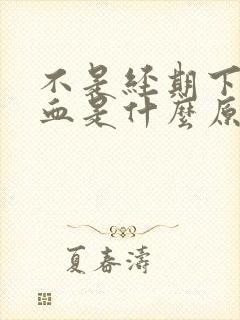 不是經期下
血是什麼原
夏春濤